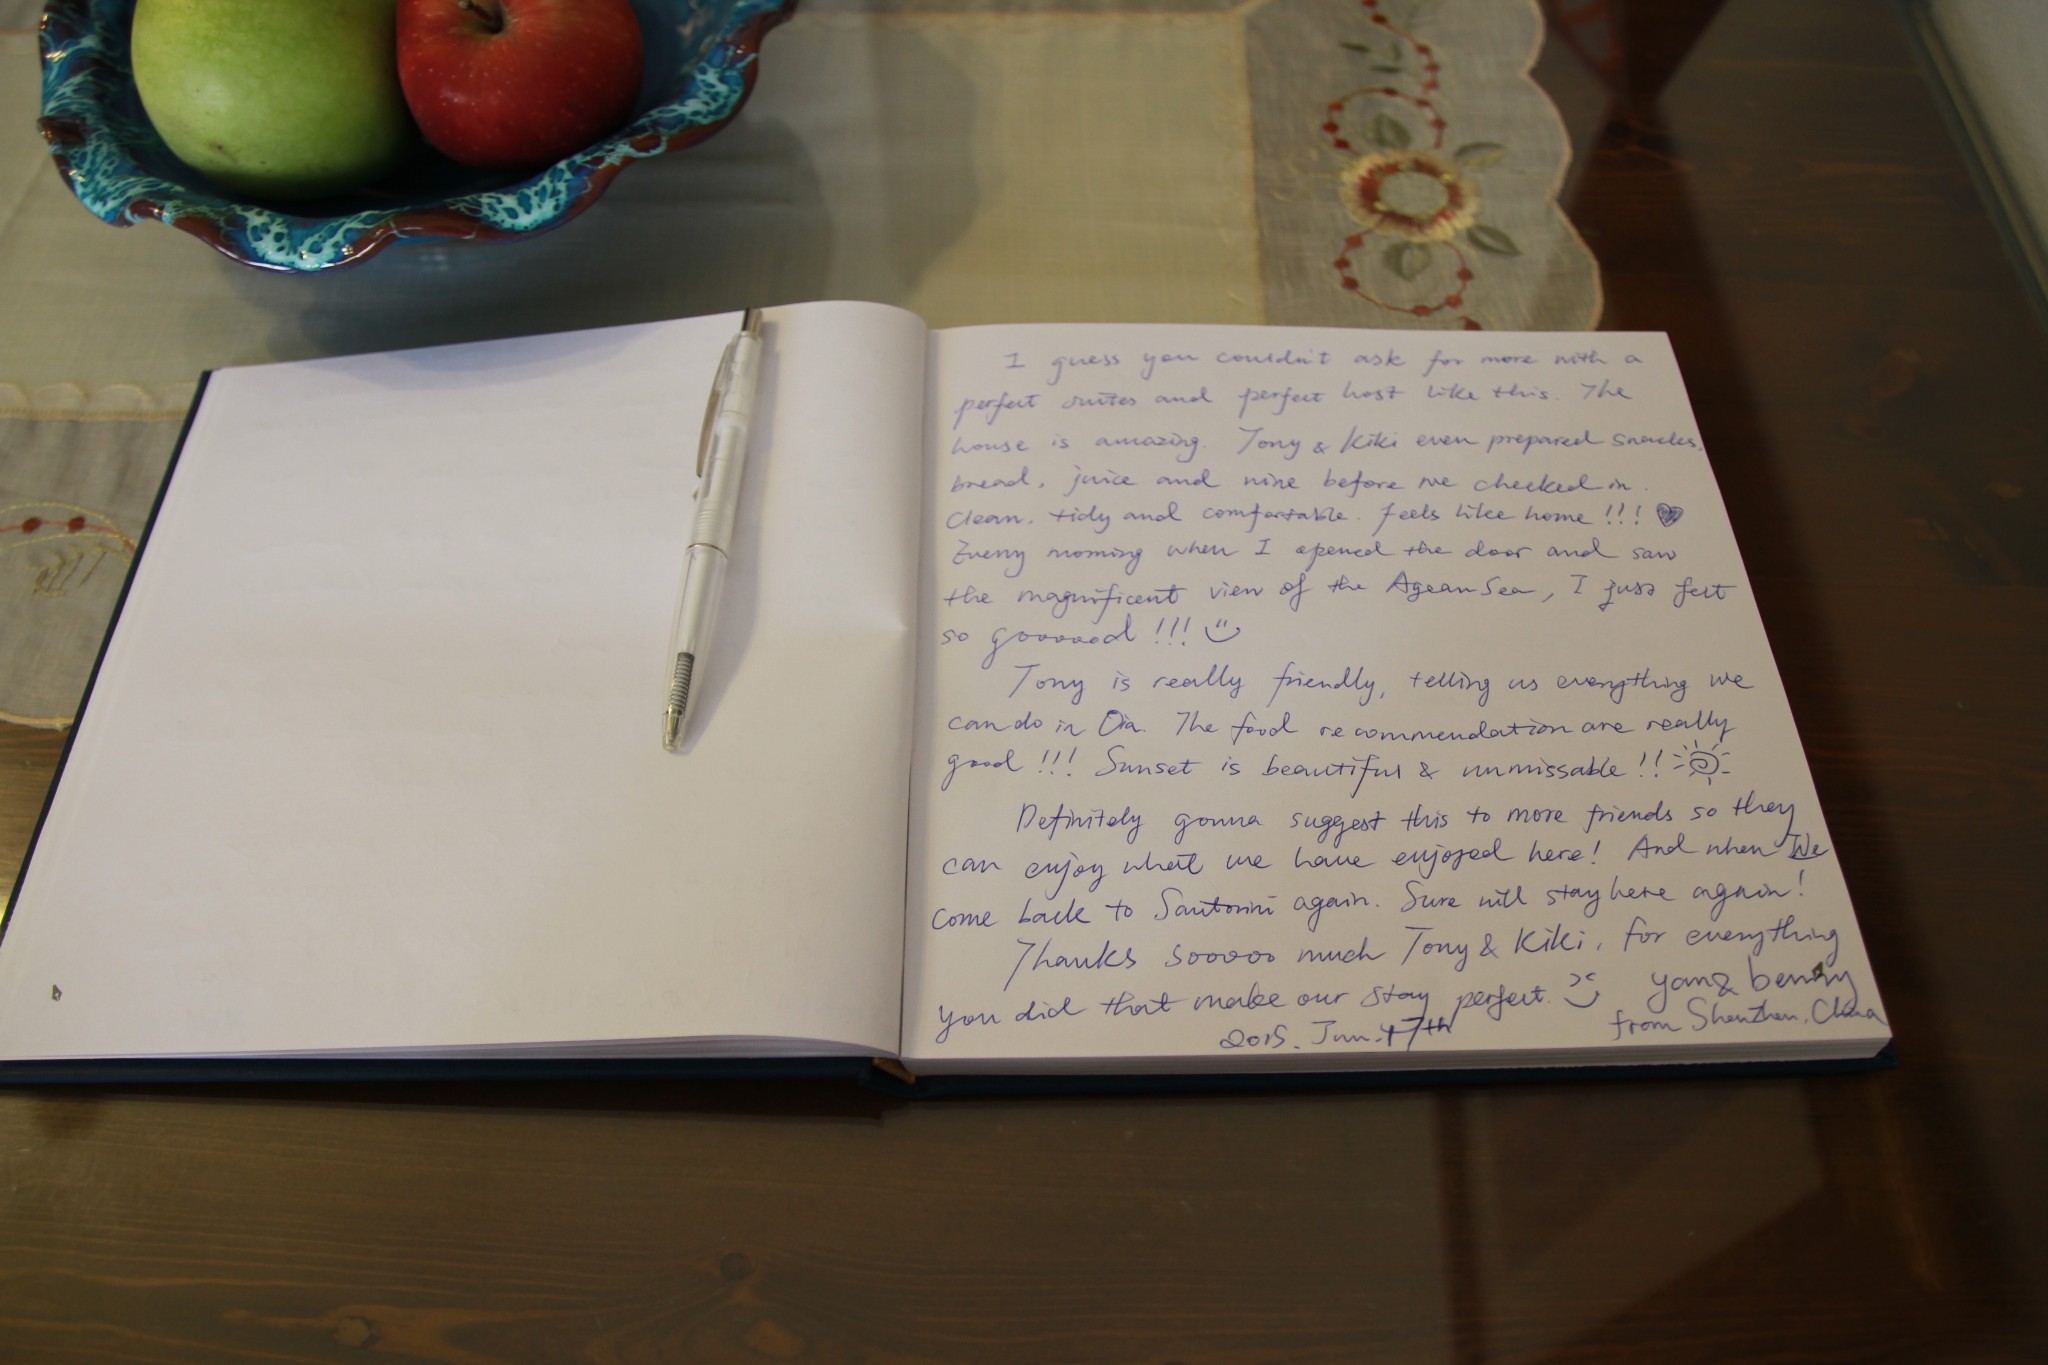 I guess you couldn't ask for more with a
perfect suites and perfect host like this. The
house is amazing. Tony & Kiki even prepared snacks,
bread, juice and wine before we checked in.
Clean, tidy and comfortable. feels like home!!!
Every morning when I opened the door and saw
the magnificent view of the Agean Sea, I just felt
so goooood!!!
Tony is really friendly, telling us everything we
can do in Oia. The food recommendation are really
good!!! Sunset is beautiful & unmissable!!
Definitely gonna suggest this to more friends so they
can enjoy what we have enjoyed here! And when We
come back to Santorini again. Sure will stay here again!
Thanks sooooo much Tony & Kiki, for everything
you did that make our stay perfect.
yan & benny
2015. Jun. 17th
from Shenzhen, China